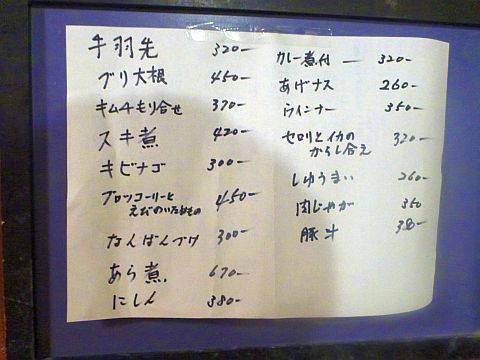 手羽先 320-
ブリ大根 450-
キムチもり合せ 370-
スキ煮 420-
キビナゴ 300-
ブロッコーリーと
えびのいためもの 450-
なんばんづけ 300-
あら煮 670-
にしん 380-
カレー煮付 320-
あげナス 260-
ウインナー 350-
セロリとイカの
からし合え 320-
しゅうまい 260-
肉じゃが 350
豚汁